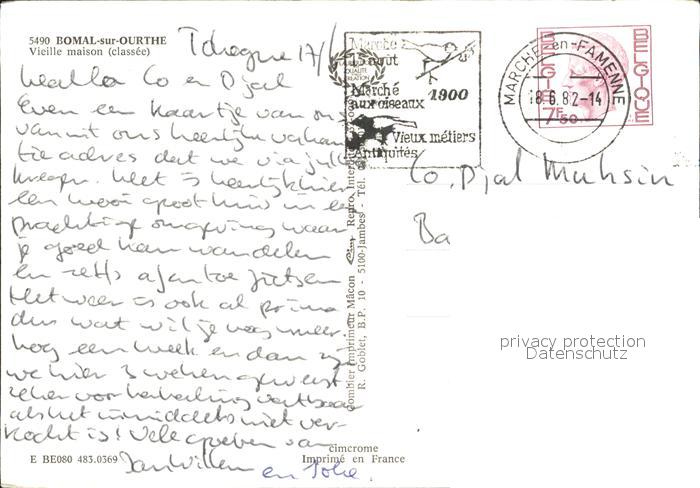 5490 BOMAL-sur-OURTHE
Vieille maison (classée)
17/6
Hallo Co en Djal
Even een kaartje van ons
vanuit ons heerlijk vakan
tie adres dat we via jullie
kregen. Het is heerlijk hier
een mooi groot huis in een
prachtige omgeving waar
je goed kan wandelen
en zelfs af en toe fietsen
Het weer is ook al prima
dus wat wil je nog meer.
Nog een week en dan zijn
we hier 3 weken geweest
zeker voor herhaling vatbaar
als het inmiddels niet ver-
kocht is! Vele groeten van
Jan Willem en Joke.
E BE080 483.0369
cimcrome
Imprimé en France
Combier Imprimeur Mâcon Cim Repro. Inter
R. Goblet, B.P. 10 - 5100-Jambes - Tél.
Marché
15 août
QUALITÉ
CRÉATION
Marché
aux oiseaux
1900
Vieux métiers
Antiquités
MARCHE-en-FAMENNE
18.6.82-14
BELGIE
BELGIQUE
7F50
Co, Djal Muhsin
Ba
privacy protection
Datenschutz